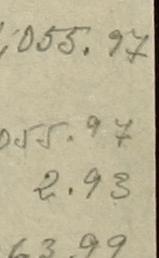 ,055.97
055.97
2.93
63.99